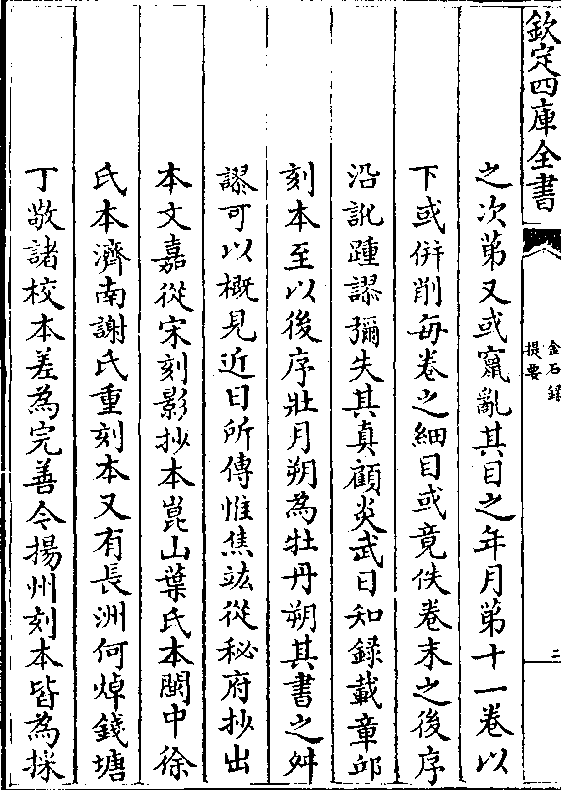 欽定四庫全書
金石錄
提要
二
之次第又或竄亂其目之年月第十一卷以
下或併削每卷之細目或竟佚卷末之後序
沿訛踵謬彌失其真顧炎武日知錄載章邱
刻本至以後序壯月朔為牡丹朔其書之舛
謬可以概見近日所傳惟焦竑從秘府抄出
本文嘉從宋刻影抄本崑山葉氏本閩中徐
氏本濟南謝氏重刻本又有長洲何焯錢塘
丁敬諸校本差為完善今揚州刻本皆為採